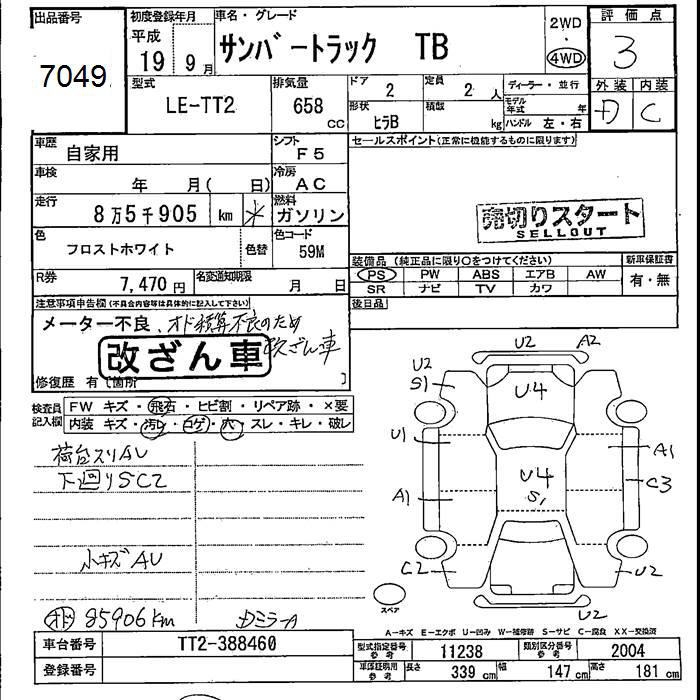 出品番号
7049
初度登録年月
平成
19年9月
車名・グレード
サンバートラック TB
2WD
・
4WD
評価点
3
外装 内装
D C
型式
LE-TT2
排気量
658 CC
ドア
2
定員
2 人
ディーラー・並行
形状
ヒラB
積数
kg
モデル年式 年
ハンドル 左・右
車歴
自家用
シフト
F5
セールスポイント(正常に機能するものに限ります)
車検
年 月( 日)
冷房
AC
走行
8万5千905 km *
燃料
ガソリン
売切りスタート
SELLOUT
色
フロストホワイト
色替
色コード
59M
装備品(純正品に限り○をつけてください) 新車保証書
PS PW ABS エアB AW 有・無
SR ナビ TV カワ
R券
7,470円
名変通知期限
月 日
後日品
注意事項申告欄(不具合内容等は具体的に記入して下さい)
メーター不良、オド積算不良のため
改ざん車
改ざん車
修復歴 有〔箇所 〕
検査員記入欄
FW キズ・飛石・ヒビ割・リペア跡・×要
内装 キズ・汚レ・コゲ・穴・スレ・キレ・破レ
荷台スリAU
下廻りSC2
小キズAU
オド 85906km
DミラーA
U2
A2
U2
S1
U4
U1
A1
U4
S1
A1
C3
C2
U2
U2
スペア
A-キズ E-エクボ U-凹み W-補修跡 S-サビ C-腐食 XX-交換済
車台番号
TT2-388460
登録番号
型式指定番号
参考
11238
類別区分番号
参考
2004
車庫証明用
参考
長さ
339 cm
幅
147 cm
高さ
181 cm